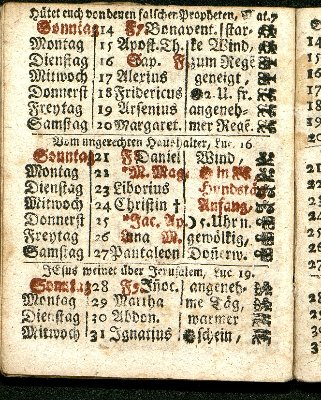 Hütet euch von denen falschen Propheten, Mat. 7
Sonntag 14 Bonavent. star-
Montag 15 Apost. Th. ke Wind,
Dienstag 16 Sap. F. zum Rege
Mitwoch 17 Alerius geneigt,
Donnerst 18 Fridericus 2. U. fr.
Freytag 19 Arsenius angeneh-
Samstag 20 Margaret. mer Rege.
Vom ungerechten Haushalter, Luc. 16
Sonntag 21 F Daniel Wind,
Montag 22 M. Mag. in
Dienstag 23 Liborius Hundstä
Mitwoch 24 Christin † Anfang,
Donnerst 25 Jac. Ap. 5. Uhr n.
Freytag 26 Ana M. gewölkig,
Samstag 27 Pantaleon Donerw.
JEsus weinet über Jerusalem, Luc 19.
Sonntag 28 F Inoc. angeneh-
Montag 29 Martha me Täg,
Dienstag 30 Abdon. warmer
Mitwoch 31 Ignatius schein,